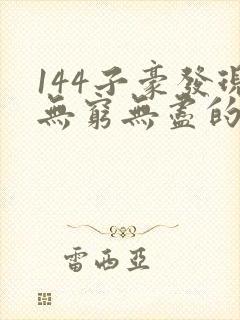 144子豪發現
無窮無盡的
雷西亞